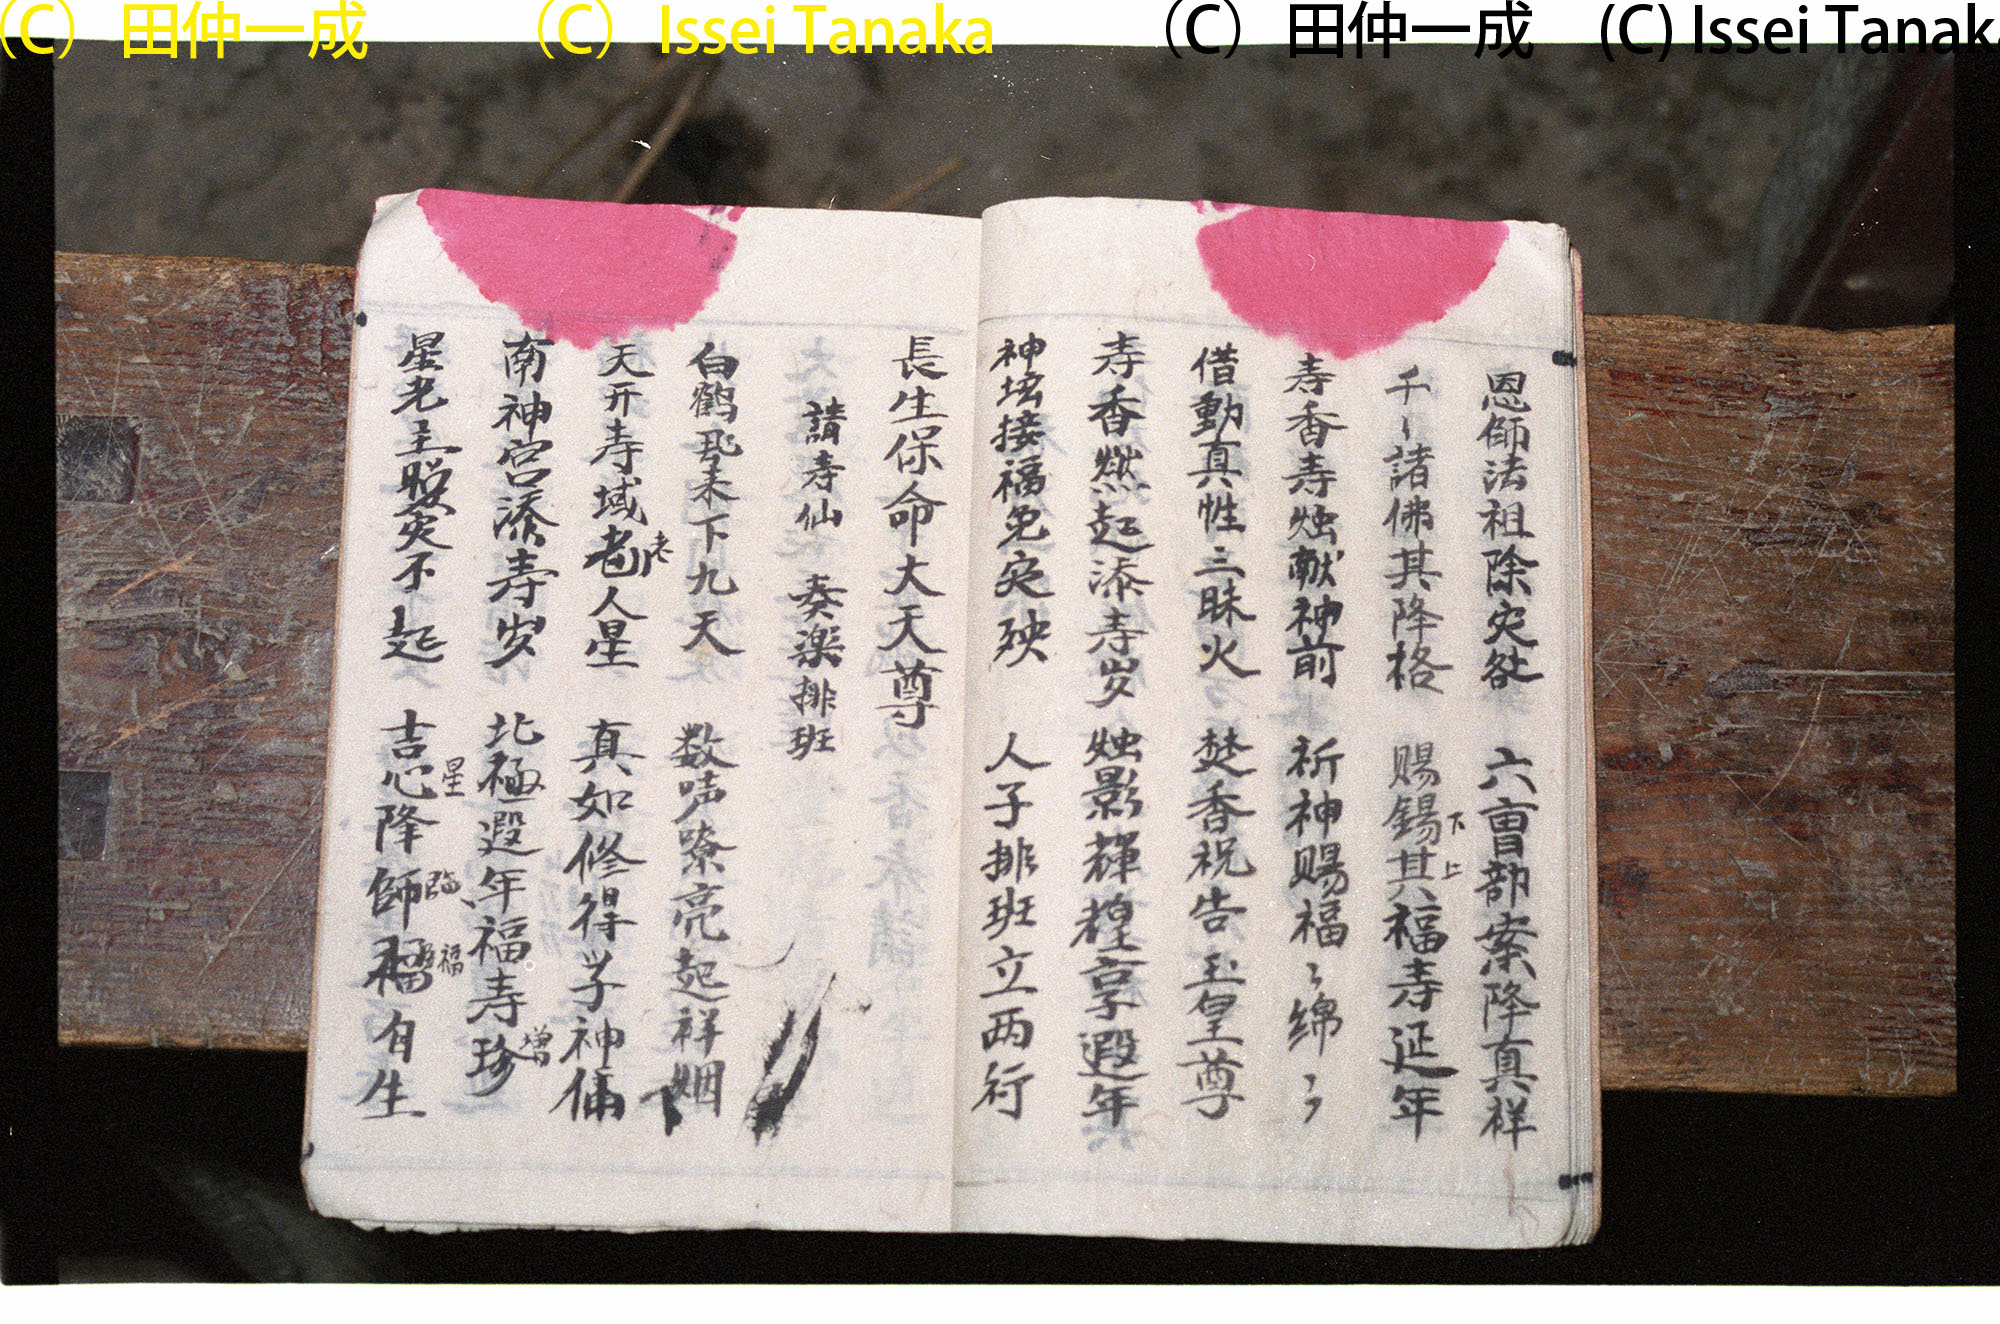 (C) 田仲一成 (C) Issei Tanaka (C) 田仲一成 (C) Issei Tanaka
恩師法祖除灾 六曹部案降真祥
千〻諸佛其降格 赐錫其福寿延年
下
上
寿香寿烛献神前 祈神赐福〻绵〻
借動真性三昧火 焚香祝告玉皇尊
寿香燃起添寿岁 烛影輝煌享遐年
神坛接福免灾殃 人子排班立两行
長生保命大天尊
請寿仙 奏楽排班
白鹤飛来下九天 数声嘹亮起祥烟
天开寿域老人星 真如修得学神僊
老
南神宫添寿岁 北極遐年福寿珍
增
星老主照灾不起 吉心降師福有生
星
臨
福